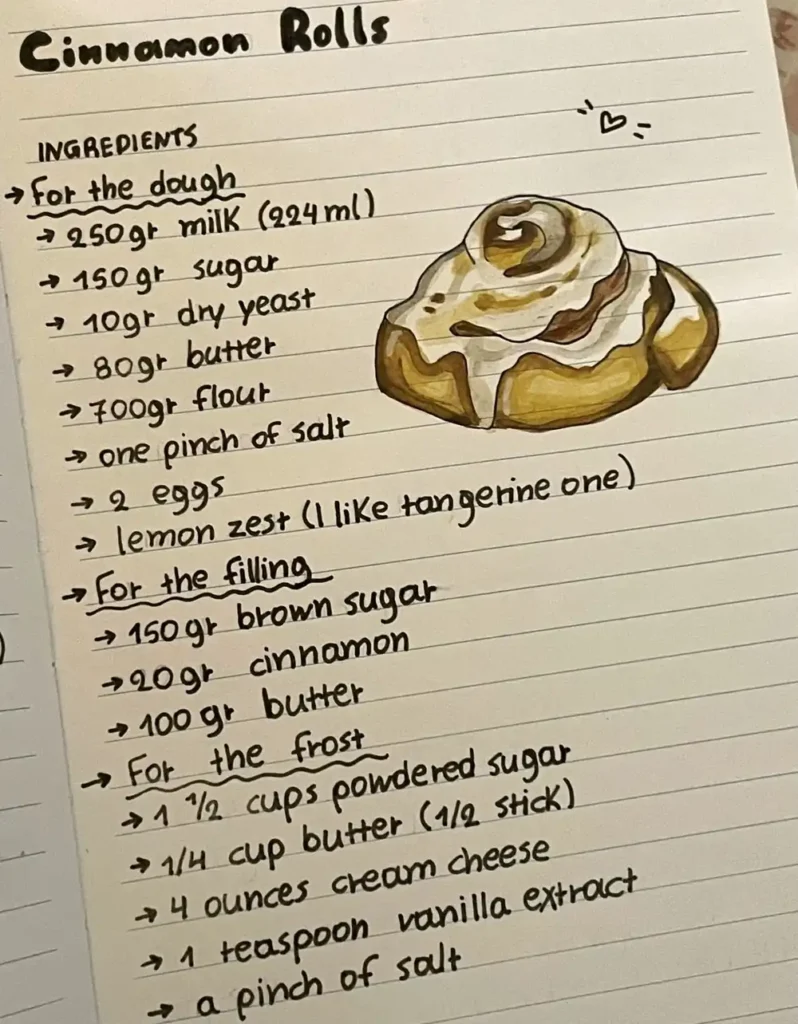 Cinnamon Rolls
INGREDIENTS
→ For the dough
→ 250gr milk (224ml)
→ 150gr sugar
→ 10gr dry yeast
→ 80gr butter
→ 700gr flour
→ one pinch of salt
→ 2 eggs
→ lemon zest (I like tangerine one)
→ For the filling
→ 150gr brown sugar
→ 20gr cinnamon
→ 100gr butter
→ For the frost
→ 1 1/2 cups powdered sugar
→ 1/4 cup butter (1/2 stick)
→ 4 ounces cream cheese
→ 1 teaspoon vanilla extract
→ a pinch of salt